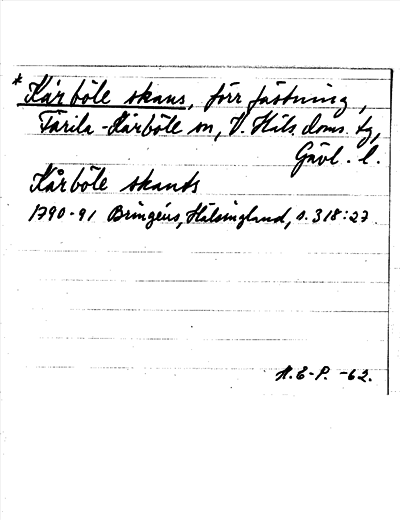 * Kårböle skans, förr fästning,
Färila-Kårböle sn, V. Häls. doms. tg,
Gävl. l.
Kårböle skants
1790-91 Bringéus, Hälsingland, s. 318:27
H.E-P. -62.